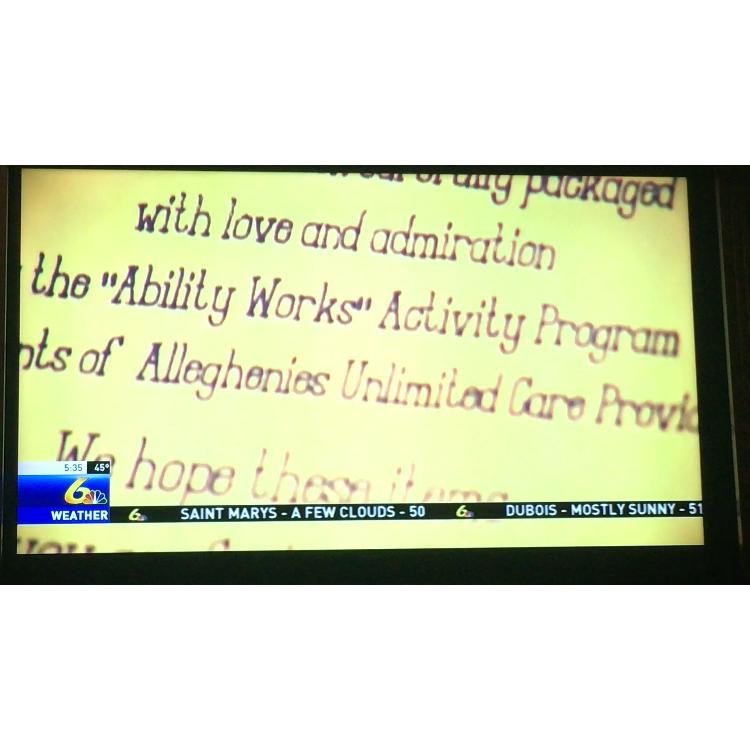 packaged
with love and admiration
the "Ability Works" Activity Program
of Alleghenies Unlimited Care
We hope these items
5:35 45°
6
WEATHER
6 SAINT MARYS - A FEW CLOUDS - 50 6 DUBOIS - MOSTLY SUNNY - 51